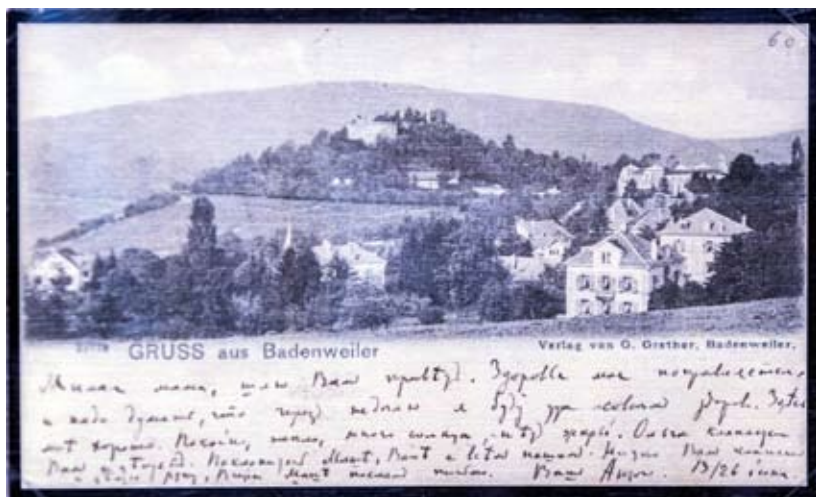 60
GRUSS aus Badenweiler
Verlag von G. Grether, Badenweiler.
Милая мама, шлю Вам привѣт. Здоровье мое поправляется,
и надо думать, что через недѣлю я буду уже совсѣм здоров. Здѣсь
мнѣ хорошо. Покойно, тепло, много солнца, нѣт жары. Ольга кланяется
Вам и цѣлует. Поклонитесь Машѣ, Ванѣ и всѣм нашим. Низко Вам кланяюсь
и цѣлую руку, Вчера Машѣ послал письмо. Ваш Антон. 13/26 июня.